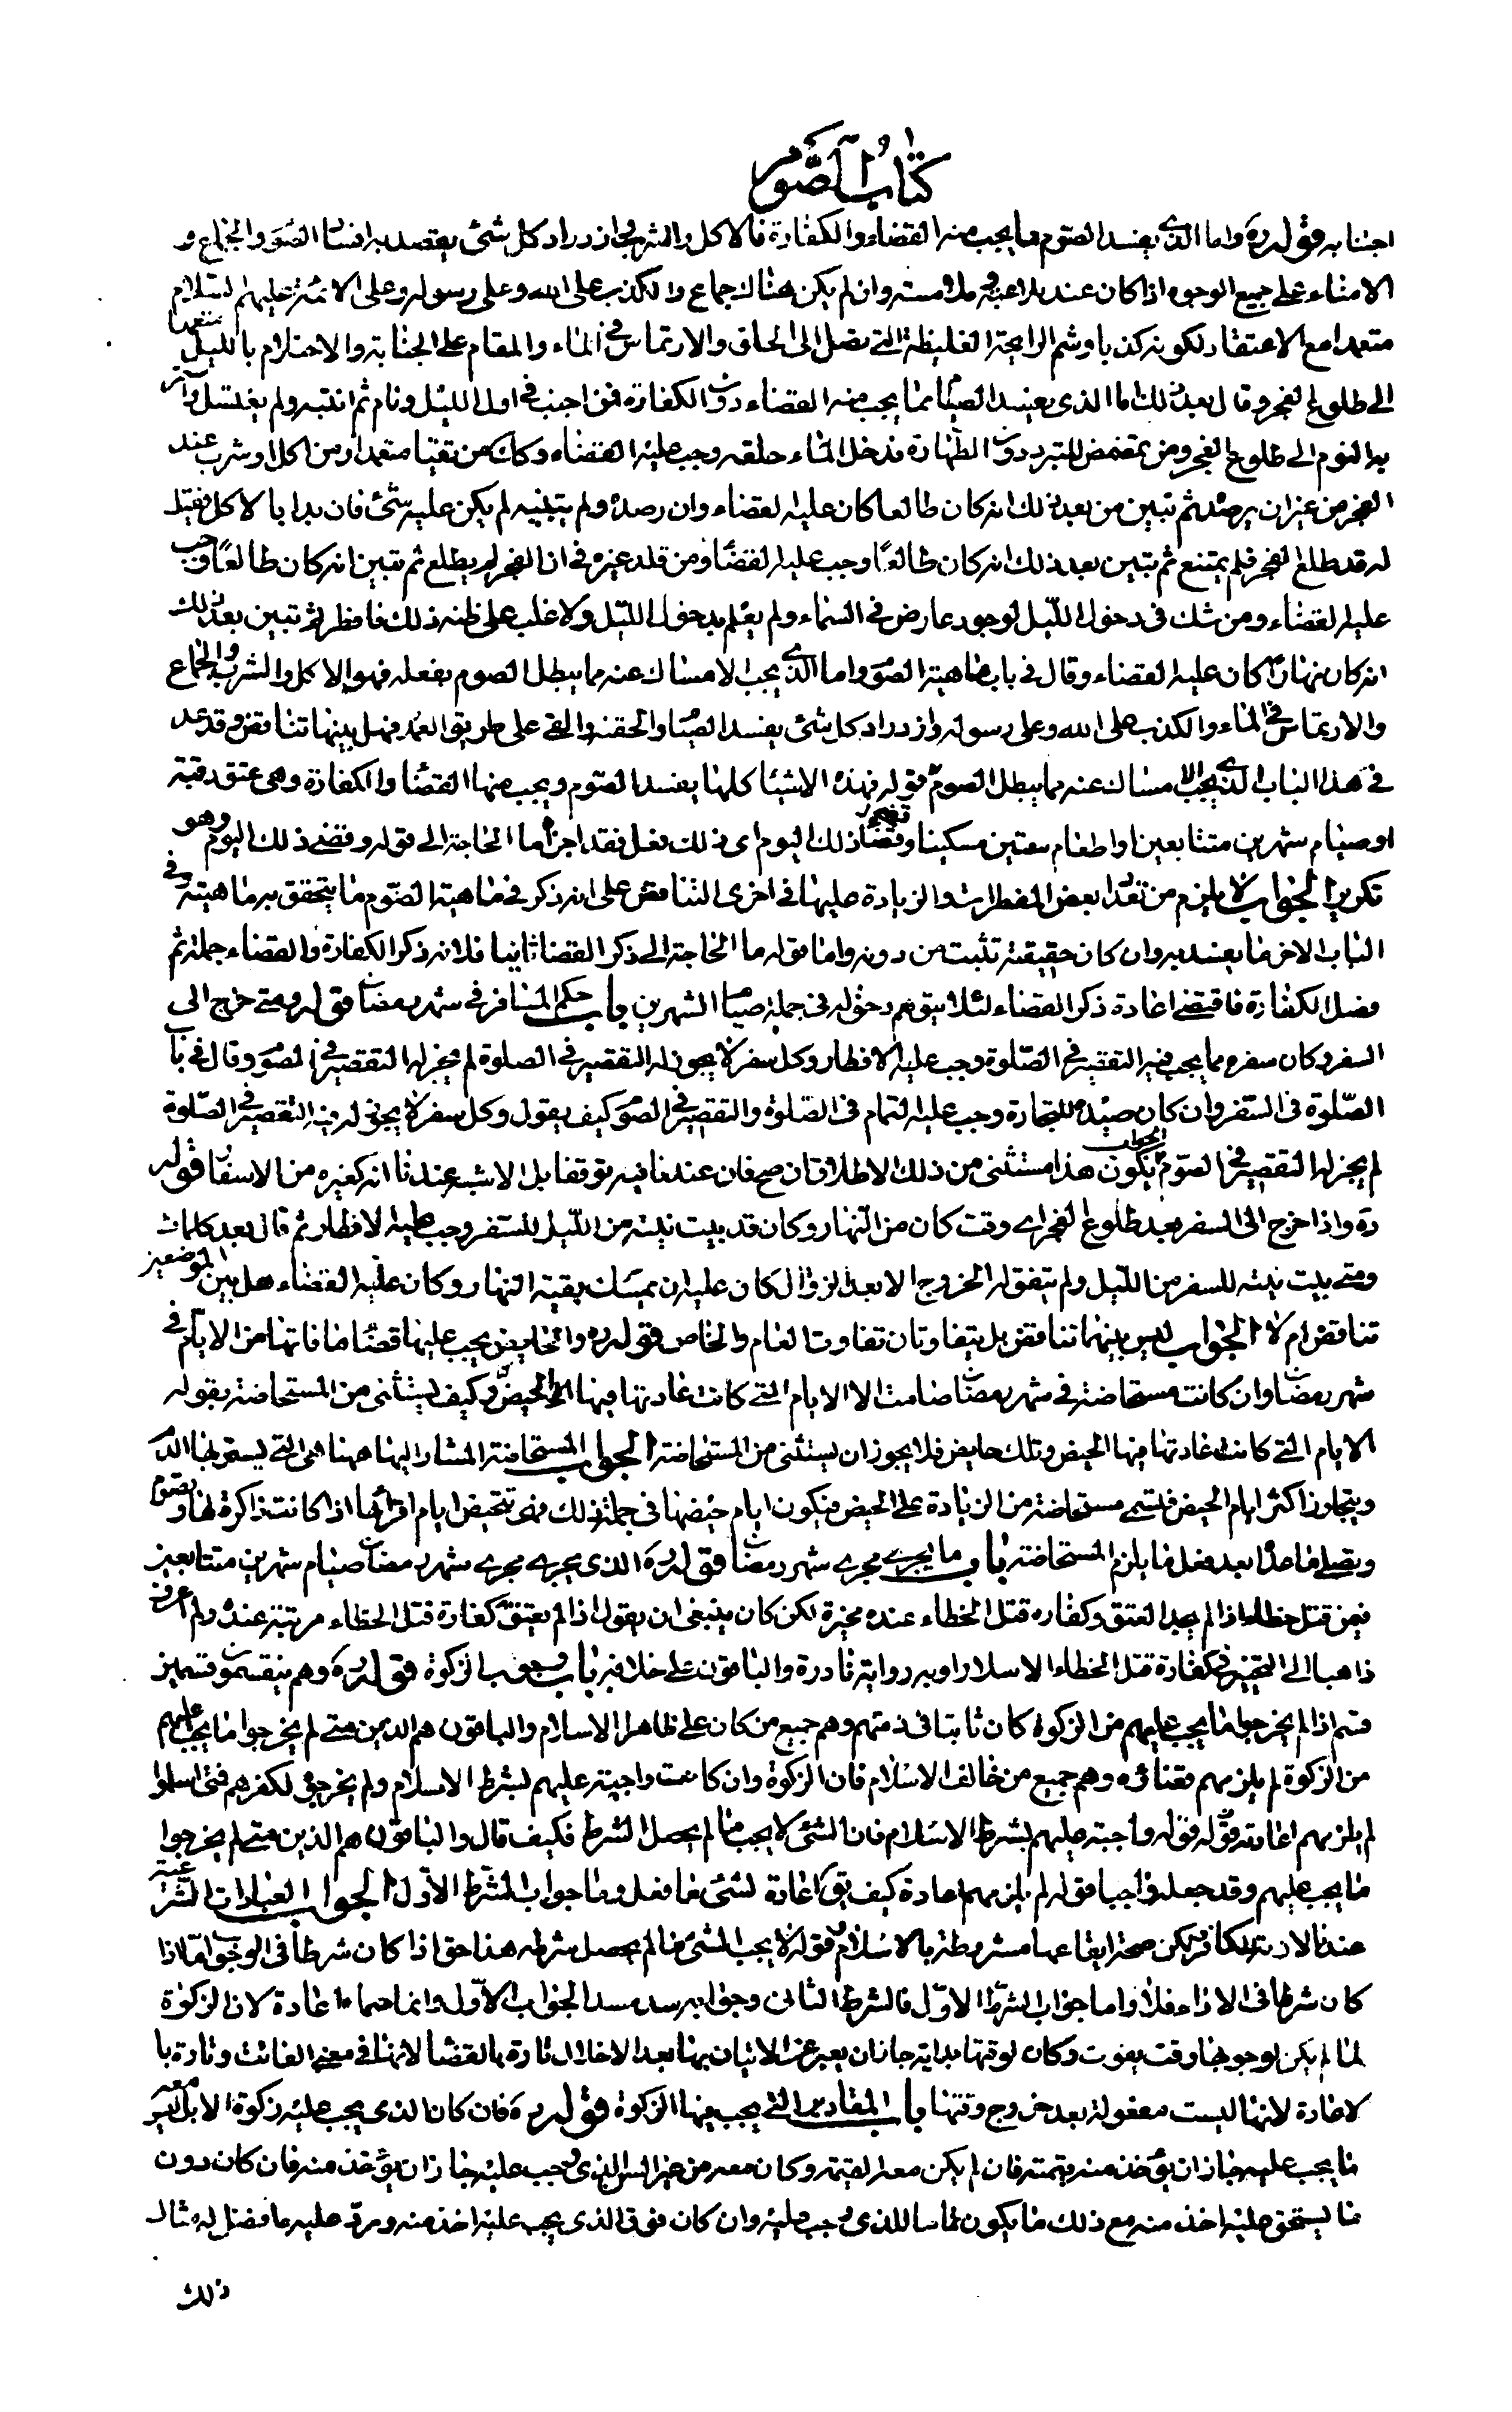 كتاب الصوم
اجتنابه قوله ره واما الذي يفسد الصوم مما يجب منه القضاء والكفارة فالاكل والشرب وازدراد كل شئ يقصد به افساد الصوم والجماع و
الامناء على جميع الوجوه اذا كان عند ملاعبة وملامسة وان لم يكن هناك جماع والكذب على الله وعلى رسوله وعلى الائمة عليهم السلام
متعمدا مع الاعتقاد لكونه كذبا وشم الرايحة الغليظة التي تصل الى الحلق والارتماس في الماء والمقام على الجنابة والاحتلام بالليل متعمدا
الى طلوع الفجر وقال بعد ذلك اما الذي يفسد الصيام مما يجب منه القضاء دون الكفارة فمن اجنب في اول الليل ونام ثم انتبه ولم يغتسل واتى
به النوم الى طلوع الفجر ومن تمضمض للتبرد دون الطهارة فدخل الماء حلقه وجب عليه القضاء وكذلك من تقيا متعمدا ومن اكل او شرب عند
الفجر من غير ان يرصده ثم تبين من بعد ذلك انه كان طالعا كان عليه القضاء وان رصده ولم يتبينه لم يكن عليه شئ فان بدا بالاكل فقيل
له قد طلع الفجر فلم يمتنع ثم تبين بعد ذلك انه كان طالعا وجب عليه القضاء ومن قلد غيره في ان الفجر لم يطلع ثم تبين انه كان طالعا وجب
عليه القضاء ومن شك في دخول الليل لوجود عارض في السماء ولم يعلم بدخول الليل ولا غلب على ظنه ذلك فافطر ثم تبين بعد ذلك
انه كان نهارا كان عليه القضاء وقال في باب ماهية الصوم واما الذي يجب الامساك عنه مما يبطل الصوم بفعله فهو الاكل والشرب والجماع
والارتماس في الماء والكذب على الله وعلى رسوله وازدراد كل شئ يفسد الصيام والحقنه والقئ على طريق العمد فهل بينهما تناقض وقد عد
في هذا الباب الذي يجب الامساك عنه مما يبطل الصوم قوله فهذه الاشياء كلها يفسد الصوم ويجب منها القضاء والكفارة وهي عتق رقبة
او صيام شهرين متتابعين او اطعام ستين مسكينا وقضاء ذلك اليوم اي ذلك فعل فقد اجزأ ما الحاجة الى قوله وقضى ذلك اليوم وهو
تكرير الجواب لا يلزم من تعداد بعض المفطرات والزيادة عليها في اخرى التناقض على انه ذكر في ماهية الصوم ما يتحقق به ماهيته وفي
الباب الاخر ما يفسد به وان كان حقيقته تثبت من دونه واما قوله ما الحاجة الى ذكر القضاء ثانيا فلانه ذكر الكفارة والقضاء جملة ثم
فصل الكفارة فاقتضى اعادة ذكر القضاء لئلا يتوهم دخوله في جملة صيام الشهرين باب حكم المسافر في شهر رمضان قوله ومتى خرج الى
السفر وكان سفره مما يجب فيه التقصير في الصلوة وجب عليه الافطار وكل سفر لا يجوز له التقصير في الصلوة لم يجز له التقصير في الصوم وقال في باب
الصلوة في السفر وان كان صيده للتجارة وجب عليه التمام في الصلوة والتقصير في الصوم كيف يقول وكل سفر لا يجوز له فيه التقصير في الصلوة
لم يجز له التقصير في الصوم الجواب يكون هذا مستثنى من ذلك الاطلاق ان صح فان عندنا فيه توقفا بل الاشبه عندنا انه كغيره من الاسفار قوله
ره واذا خرج الى السفر بعد طلوع الفجر اي وقت كان من النهار وكان قد بيت نيته من الليل للسفر وجب عليه الافطار ثم قال بعد كلمات
ومتى بيت نيته للسفر من الليل ولم يتفق له الخروج الا بعد الزوال كان عليه ان يمسك بقية النهار وكان عليه القضاء هل بين الموضعين
تناقض ام لا الجواب ليس بينهما تناقض بل يتفاوتان تفاوت العام والخاص قوله ره والحايض يجب عليها قضاء ما فاتها من الايام في
شهر رمضان وان كانت مستحاضة في شهر رمضان صامت الا الايام التي كانت عادتها فيها الحيض كيف يستثنى من المستحاضة بقوله
الايام التي كانت عادتها فيها الحيض وتلك حايض فلا يجوز ان يستثنى من المستحاضة الجواب المستحاضة المشار اليها ههنا هي التي يستمر بها الدم
ويتجاوز اكثر ايام الحيض فتسمى مستحاضة من الزيادة على الحيض فيكون ايام حيضها في جملة ذلك فهي تتحيض ايام اقرائها اذا كانت ذاكرة لها وتصوم
وتصلي ما عدا بعد فعل ما يلزم المستحاضة باب ما يجري مجرى شهر رمضان قوله ره الذي يجري مجرى شهر رمضان صيام شهرين متتابعين
فيمن قتل خطاء اذا لم يجد العتق وكفارة قتل الخطاء عنده مخيرة لكن كان ينبغي ان يقول اذا لم يعتق كفارة قتل الخطاء مرتبة عنده ولم اعرف
ذاهبا الى التخيير في كفارة قتل الخطاء الا سلار وبه رواية نادرة والباقون على خلافه باب وجوب الزكوة قوله ره وهم ينقسمون قسمين
قسم اذا لم يخرجوا ما يجب عليهم من الزكوة كان ثابتا في ذمتهم وهم جميع من كان على ظاهر الاسلام والباقون هم الذين متى لم يخرجوا ما يجب عليهم
من الزكوة لم يلزمهم قضاؤه وهم جميع من خالف الاسلام فان الزكوة وان كانت واجبة عليهم بشرط الاسلام ولم يخرجوها لكفرهم فمتى اسلموا
لم يلزمهم اعادته قوله واجبة عليهم بشرط الاسلام فان الشئ لا يجب ما لم يحصل الشرط فكيف قال والباقون هم الذين متى لم يخرجوا
ما يجب عليهم وقد جعله واجبا قوله لم يلزمهم اعادة كيف يق اعادة لشئ ما فعل وما جواب الشرط الاول الجواب العبادات الشرعية
عندنا لازمة للكافر لكن صحة ايقاعها مشروطة بالاسلام قوله لا يجب الشئ ما لم يحصل شرطه هذا حق اذا كان شرطا في الوجوب اما اذا
كان شرطا في الاداء فلا واما جواب الشرط الاول فالشرط الثاني وجوابه يسد مسد الجواب الاول وانما سماها اعادة لان الزكوة
لما لم يكن لوجوبها وقت يفوت وكان لوقتها بداية جاز ان يعبر عن الاتيان بها بعد الاخلال تارة بالقضاء لانها في معنى الفائت وتارة با
لاعادة لانها ليست مفعولة بعد خروج وقتها باب المقادير التي يجب فيها الزكوة قوله ره فان كان الذي يجب عليه زكوة الابل ليس معه
ما يجب عليه جاز ان يؤخذ منه قيمته فان لم يكن معه القيمة وكان معه من غير السن الذي وجب عليه جاز ان يؤخذ منه فان كان دون
ما يستحق عليه اخذ منه مع ذلك ما يكون تماما للذي وجب عليه وان كان فوق الذي يجب عليه اخذ منه ورد عليه ما فضل له مثال
ذلك